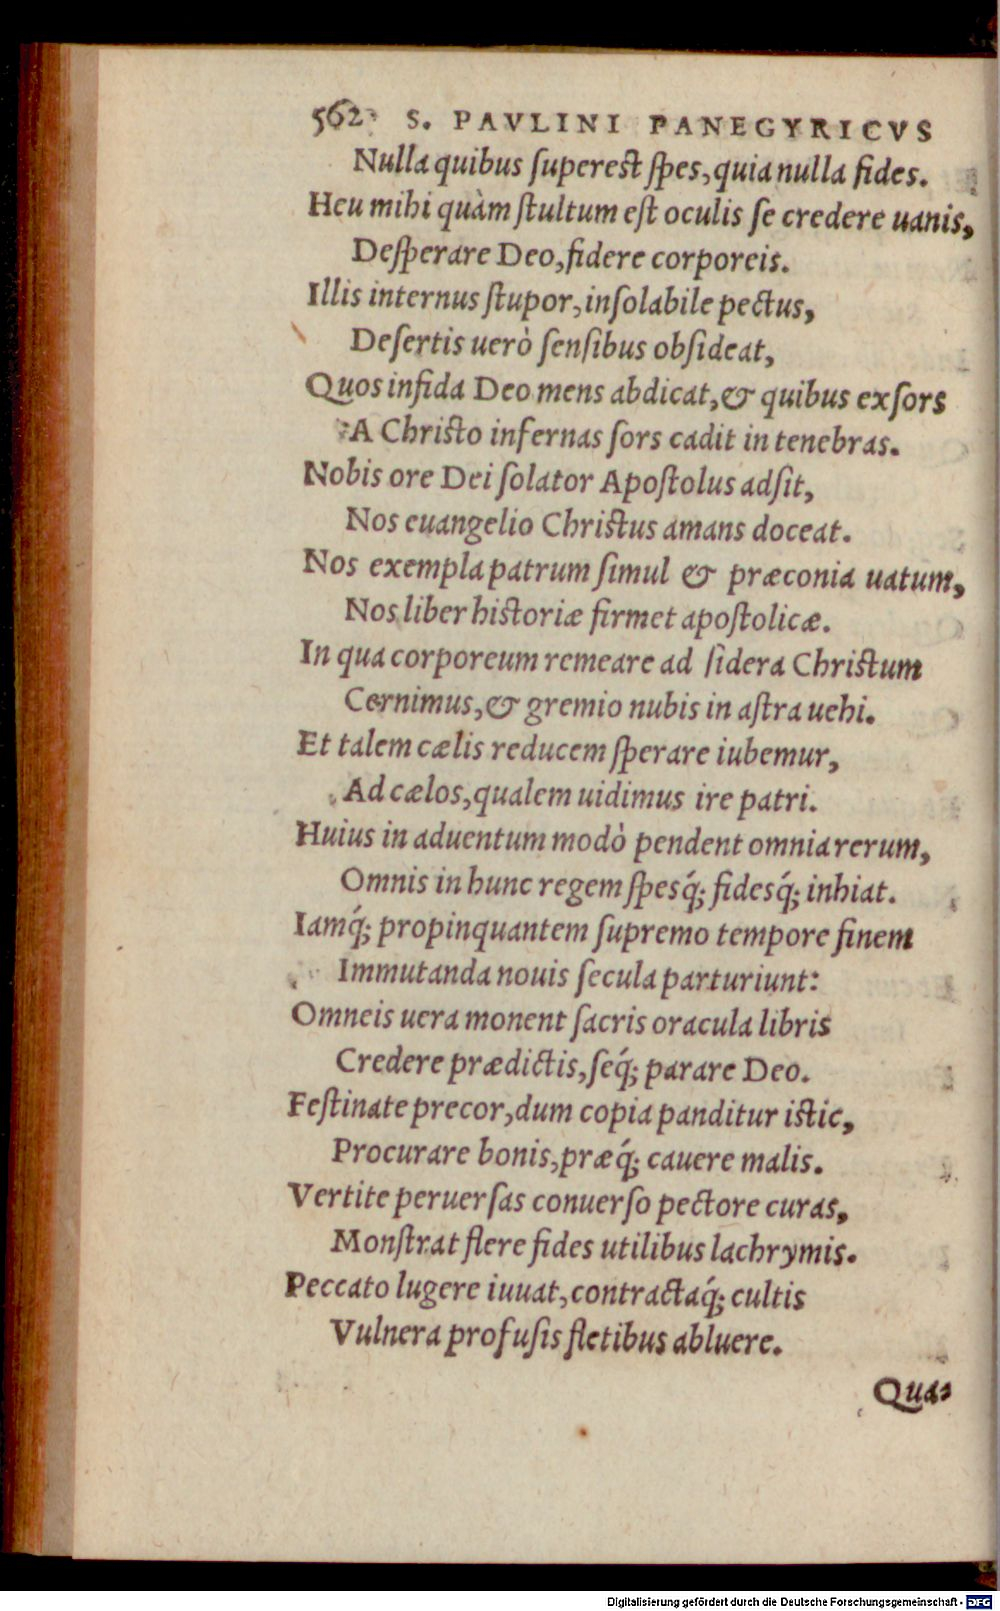 562 S. PAVLINI PANEGYRICVS
Nulla quibus ſupereſt ſpes, quia nulla fides.
Heu mihi quàm ſtultum eſt oculis ſe credere uanis,
Deſperare Deo, fidere corporeis.
Illis internus ſtupor, inſolabile pectus,
Deſertis uerò ſenſibus obſideat,
Quos infida Deo mens abdicat, & quibus exſors
A Chriſto infernas ſors cadit in tenebras.
Nobis ore Dei ſolator Apoſtolus adſit,
Nos euangelio Chriſtus amans doceat.
Nos exempla patrum ſimul & præconia uatum,
Nos liber hiſtoriæ firmet apoſtolicæ.
In qua corporeum remeare ad ſidera Chriſtum
Cernimus, & gremio nubis in aſtra uehi.
Et talem cælis reducem ſperare iubemur,
Ad cælos, qualem uidimus ire patri.
Huius in aduentum modò pendent omnia rerum,
Omnis in hunc regem ſpesq́; fidesq́; inhiat.
Iamq́; propinquantem ſupremo tempore finem
Immutanda nouis ſecula parturiunt:
Omneis uera monent ſacris oracula libris
Credere prædictis, ſeq́; parare Deo.
Feſtinate precor, dum copia panditur iſtic,
Procurare bonis, præq́; cauere malis.
Vertite peruerſas conuerſo pectore curas,
Monſtrat flere fides utilibus lachrymis.
Peccato lugere iuuat, contractaq́; cultis
Vulnera profuſis fletibus abluere.
Qua-
Digitalisierung gefördert durch die Deutsche Forschungsgemeinschaft - DFG